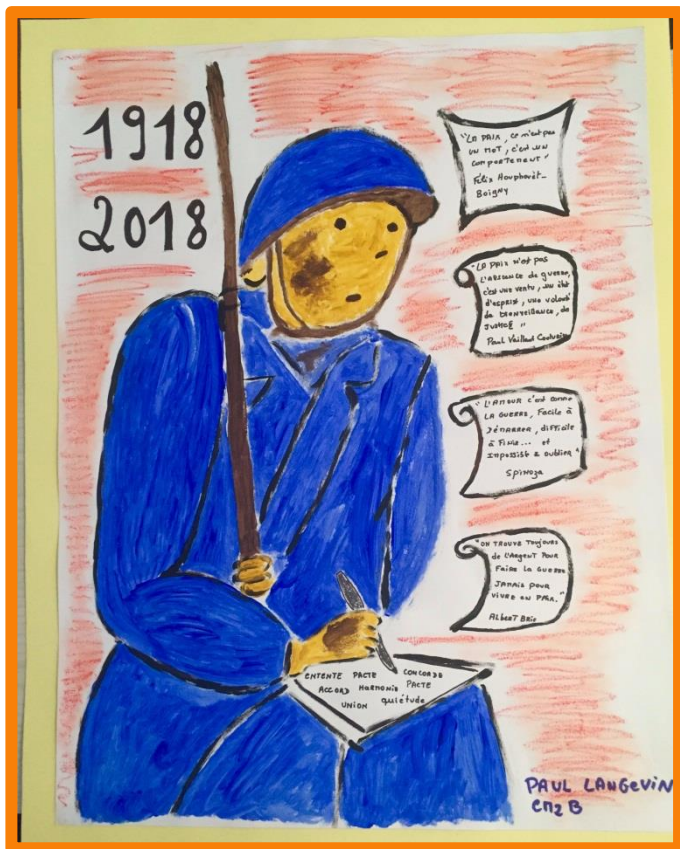 1918
2018
"LA PAIX, ce n'est pas
UN MOT, c'est UN
comportement"
Félix Houphouët-
Boigny
"LA PAIX n'est pas
l'absence de guerre,
c'est une vertu, un état
d'esprit, une volonté
de bienveillance, de
justice "
Paul Vaillant Couturier
"L'AMOUR c'est comme
LA GUERRE, Facile à
DÉMARRER, difficile
à Finir... et
impossible à oublier"
SPINOZA
"ON TROUVE Toujours
de l'ARGENT POUR
Faire la GUERRE
JAMAIS pour
VIVRE en PAIX."
ALBERT
ENTENTE PACTE CONCORDE
ACCORD HARMONIE PACTE
UNION quiétude
PAUL LANGEVIN
CM2 B